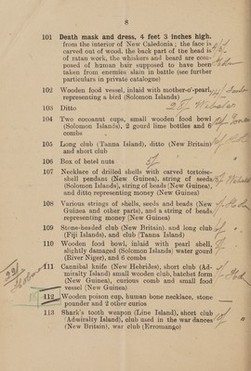 8
101 Death mask and dress, 4 feet 3 inches high,
from the interior of New Caledonia; the face is
carved out of wood, the back part of the head is
of ratan work, the whiskers and beard are com-
posed of human hair supposed to have been
taken from enemies slain in battle (see further
particulars in private catalogue)
102 Wooden food vessel, inlaid with mother-o'-pearl,
representing a bird (Solomon Islands)
103 Ditto
104 Two cocoanut cups, small wooden food bowl
(Solomon Islands), 2 gourd lime bottles and 6
combs
105 Long club (Tanna Island), ditto (New Britain)
and short club
106 Box of betel nuts
107 Necklet of drilled shells with carved tortoise-
shell pendant (New Guinea), string of seeds
(Solomon Islands), string of beads (New Guinea),
and ditto representing money (New Guinea)
108 Various strings of shells, seeds and beads (New
Guinea and other parts), and a string of beads
representing money (New Guinea)
109 Stone-headed club (New Britain) and long club
(Fiji Islands), and club (Tanna Island)
110 Wooden food bowl, inlaid with pearl shell,
slightly damaged (Solomon Islands) water gourd
(River Niger), and 6 combs
111 Cannibal knife (New Hebrides), short club (Ad-
miralty Island) small wooden club, hatchet form
(New Guinea), curious comb and small food
vessel (New Guinea)
112 Wooden poison cup, human bone necklet, stone
pounder and 2 other curios
113 Shark's tooth weapon (Line Island), short club
(Admiralty Island), club used in the war dances
(New Britain), war club (Erromango)